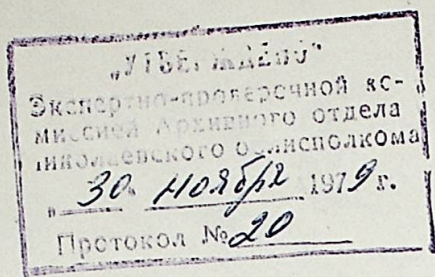 „УТВЕРЖДЕНО"
Экспертно-проверочной ко-
миссией Архивного отдела
Николаевского облисполкома
„ 30 " ноября 1979 г.
Протокол № 20